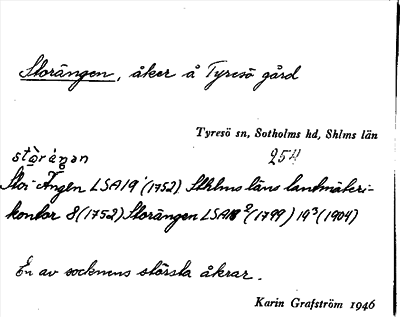 Storängen, åker å Tyresö gård
Tyresö sn, Sotholms hd, Shlms län
254
stòráŋən
Stor-Ängen LSA 19¹ (1752) Sthlms läns lantmäteri-
kontor 8 (1752) Storängen LSA 18² (1799) 19³ (1904)
En av socknens största åkrar.
Karin Grafström 1946